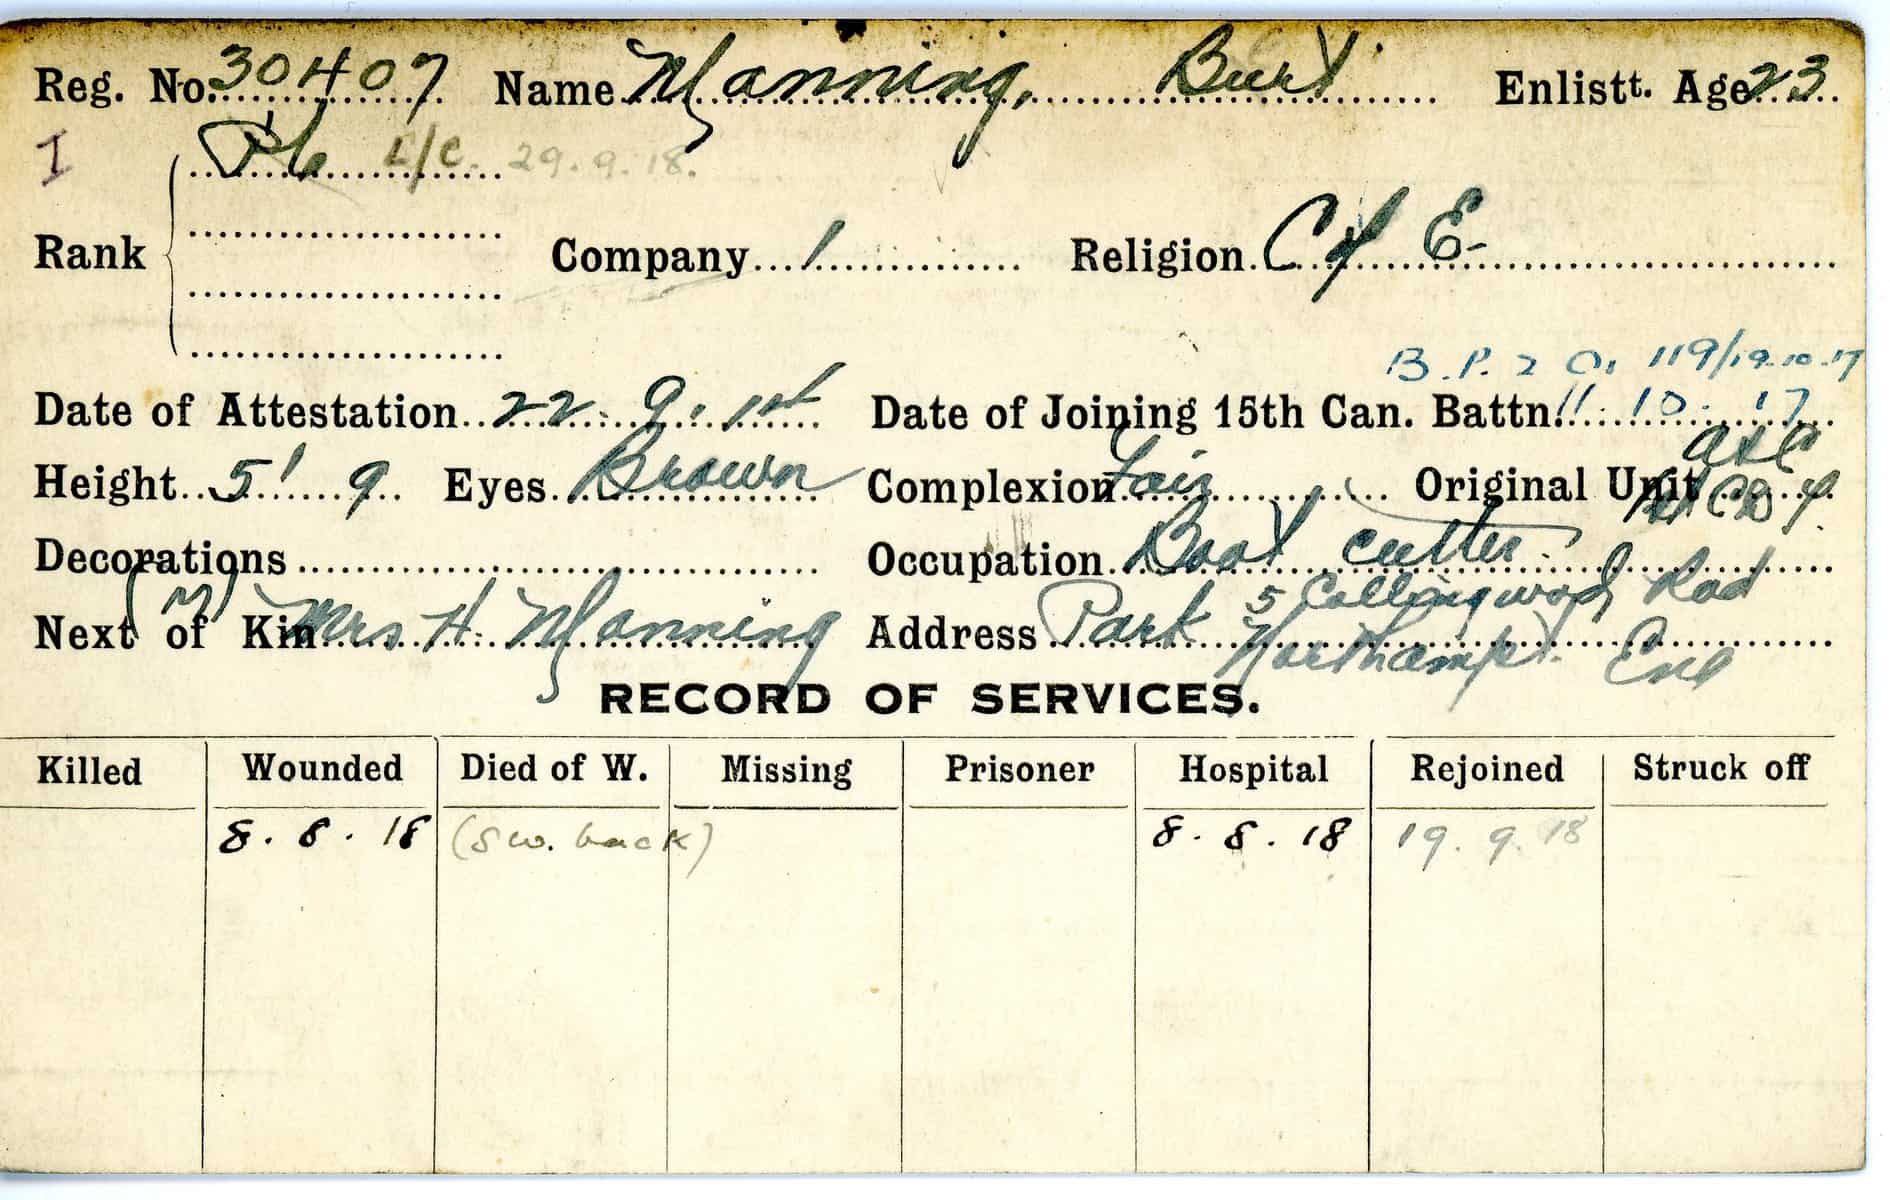 Reg. No. 30407 Name Manning, Burt Enlistt. Age 23
I Pte L/C. 29.9.18.
Rank Company 1 Religion C of E-
B.P. 2 O. 119/19.10.17
Date of Attestation 22. 9. 14 Date of Joining 15th Can. Battn. 11. 10. 17
Height 5' 9 Eyes Brown Complexion Fair Original Unit
Decorations Occupation Boot cutter
(M) 5 Collingwood Rod
Next of Kin Mrs H. Manning Address Park
Northampt. Eng
RECORD OF SERVICES.
Killed Wounded Died of W. Missing Prisoner Hospital Rejoined Struck off
8. 8. 18 (S w. back) 8. 8. 18 19. 9. 18